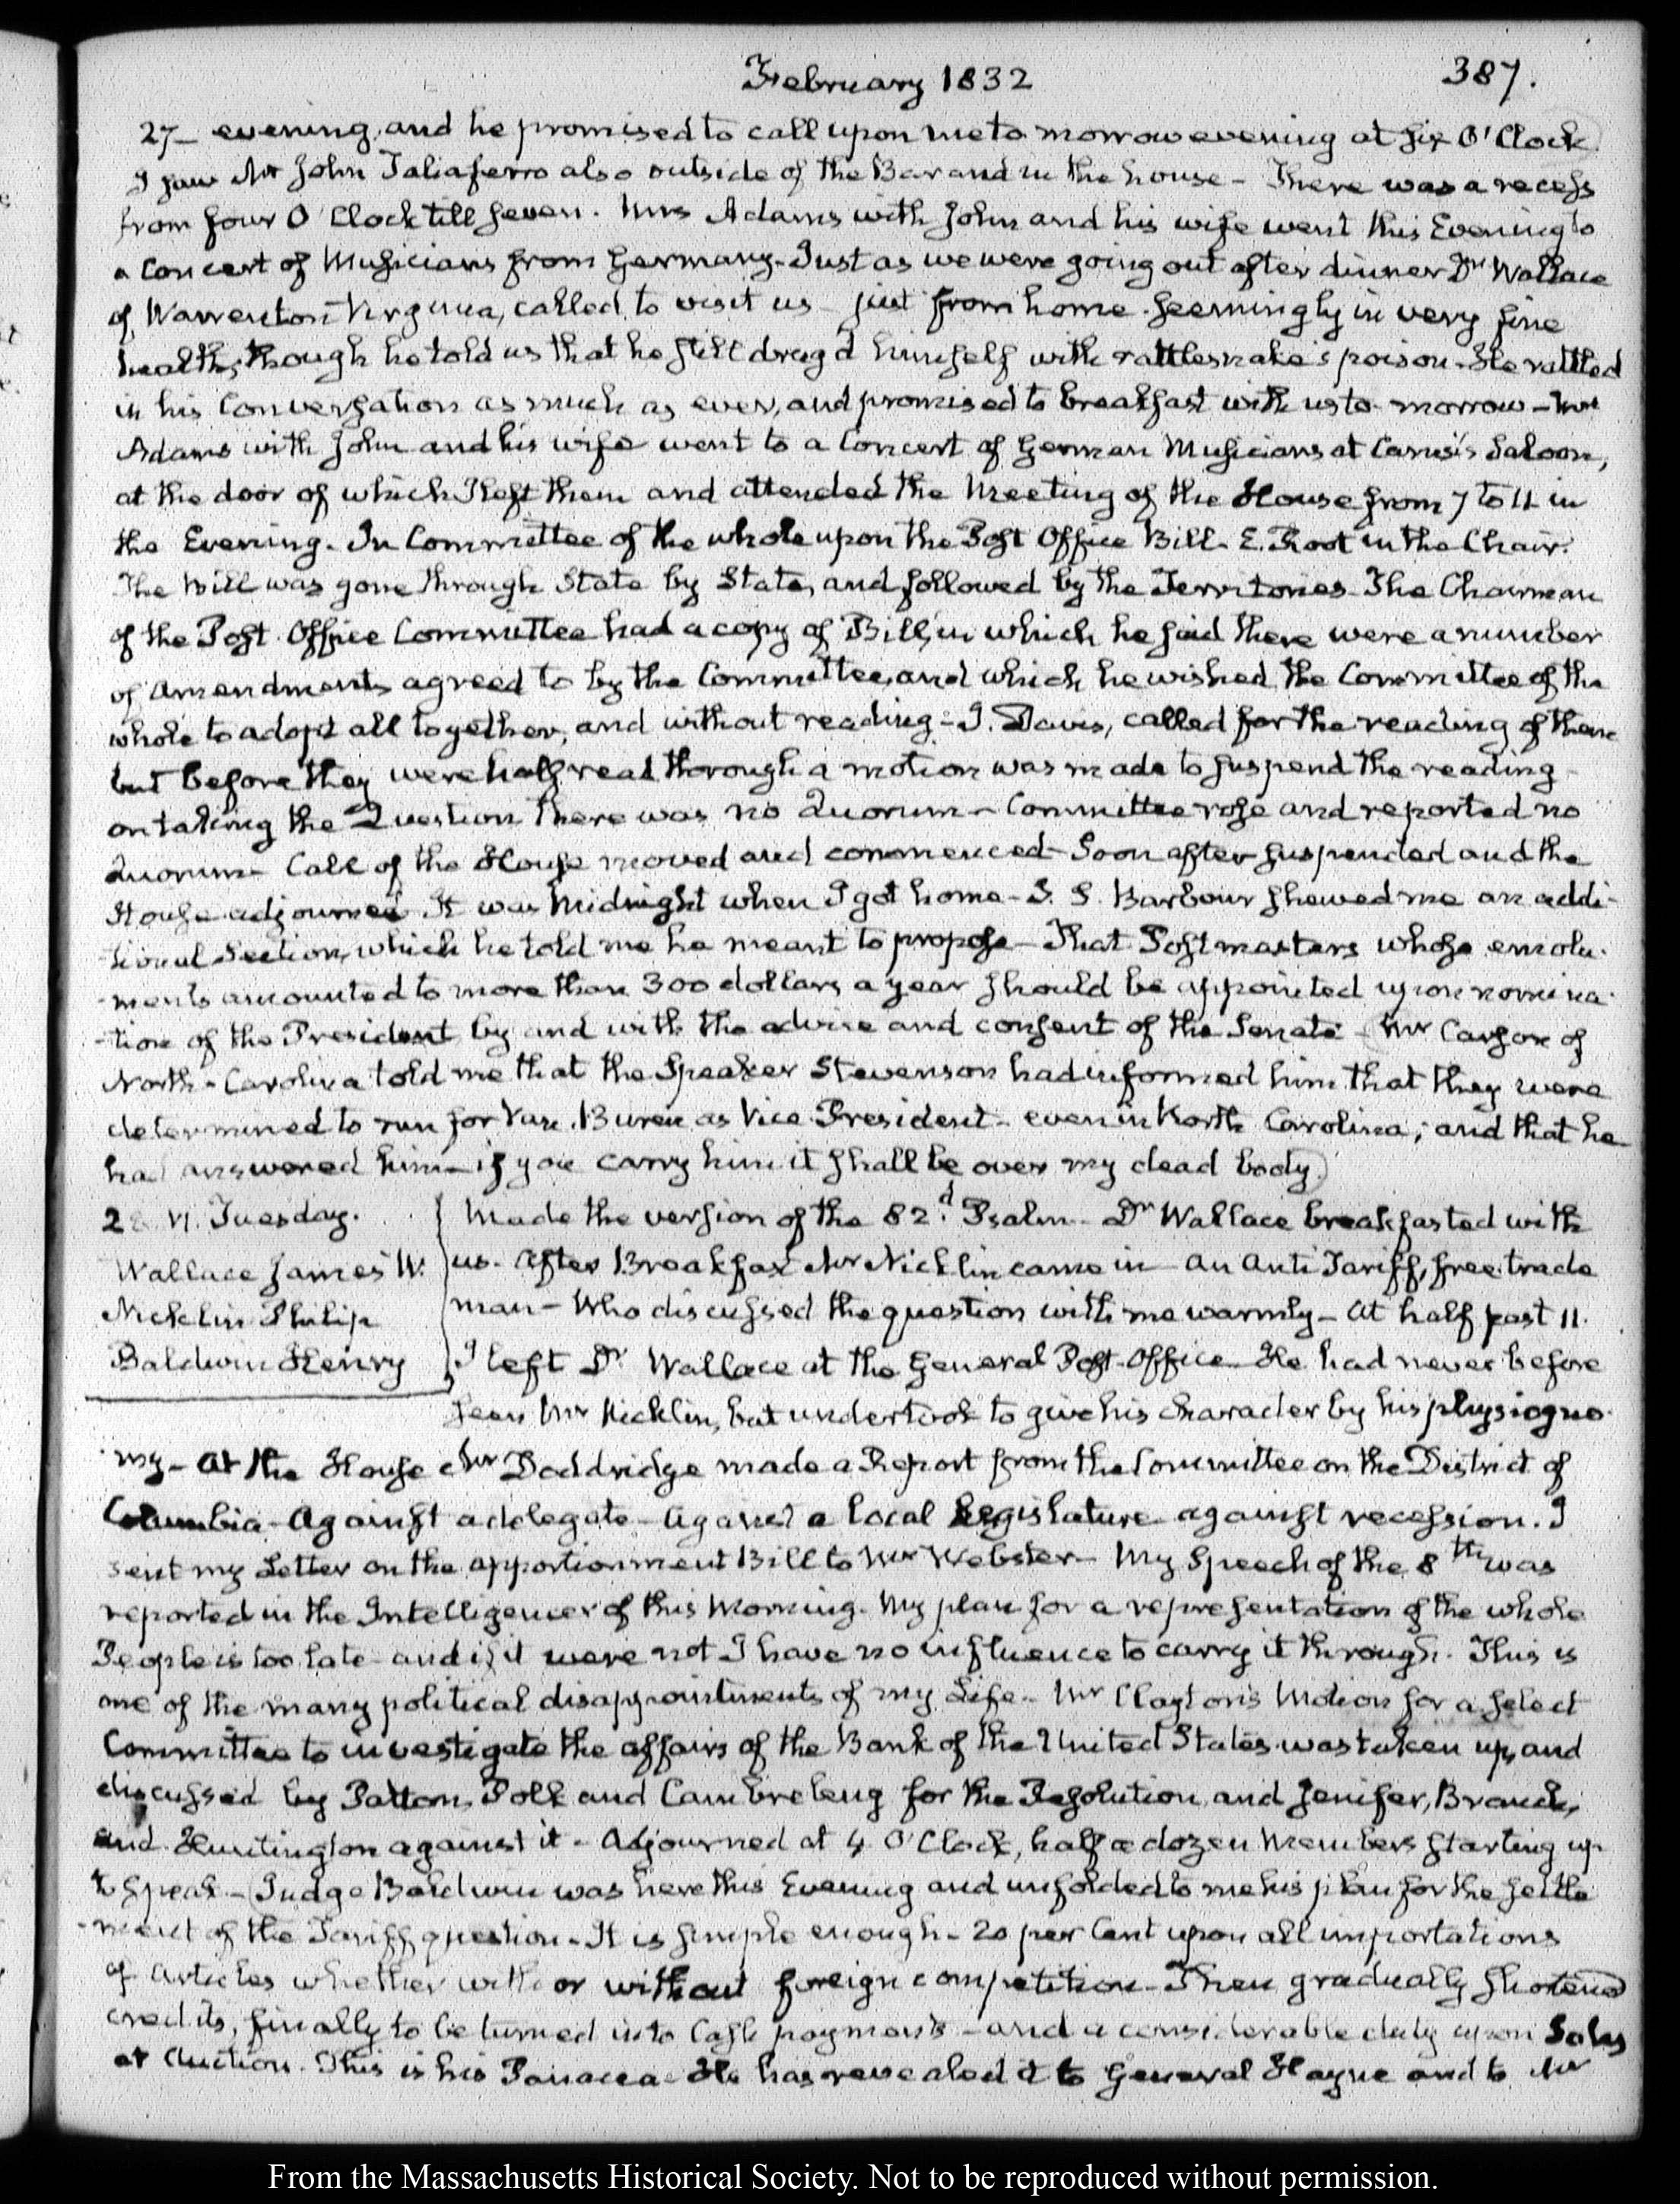 February 1832
387.
27- evening, and he promised to call upon me to morrow evening at six O'Clock.
I saw Mr John Taliaferro also outside of the Bar and in the house - There was a recess
from four O'Clock till seven. Mrs Adams with John and his wife went this Evening to
a Concert of Musicians from Germany - Just as we were going out after dinner Dr Wallace
of Warrenton Virginia, called to visit us - just from home - seemingly in very fine
health, though he told us that he still drug'd himself with rattlesnake's poison - He rattled
in his Conversation as much as ever, and promised to breakfast with us to-morrow - Mrs
Adams with John and his wife went to a Concert of German Musicians at Carusi's Saloon,
at the door of which I left them and attended the Meeting of the House from 7 to 11 in
the Evening. In Committee of the whole upon the Post Office Bill - E. Root in the Chair.
The Bill was gone through State by State, and followed by the Territories - The Chairman
of the Post Office Committee had a copy of Bill, in which he said there were a number
of amendments agreed to by the Committee, and which he wished the Committee of the
whole to adopt all together, and without reading - J. Davis, called for the reading of them
but before they were half read through a motion was made to suspend the reading -
on taking the Question there was no Quorum - Committee rose and reported no
Quorum - Call of the House moved and commenced - Soon after suspended and the
House adjourned. It was Midnight when I got home - J. S. Barbour shewed me an addi-
tional Section, which he told me he meant to propose - That Postmasters whose emolu-
-ments amounted to more than 300 dollars a year should be appointed upon nomina-
-tion of the President by and with the advice and consent of the Senate - Mr Carson of
North-Carolina told me that the Speaker Stevenson had informed him that they were
determined to run for Van Buren as Vice President - even in North Carolina; and that he
had answered him - if you carry him it shall be over my dead body
28. VI. Tuesday.
Wallace James W.
Nicklin Philip
Baldwin Henry
Made the version of the 82d. Psalm - Dr Wallace breakfasted with
us. After Breakfast Mr Nicklin came in - An Anti Tariff, free trade
man - Who discussed the question with me warmly - At half past 11.
I left Dr Wallace at the General Post-Office - He had never before
seen Mr Nicklin, but undertook to give his character by his physiogno-
my - At the House Mr Doddridge made a Report from the Committee on the District of
Columbia - Against a delegate - Against a local Legislature - against recession. I
sent my Letter on the apportionment Bill to Mr Webster - My Speech of the 8th was
reported in the Intelligencer of this Morning. My plan for a representation of the whole
People is too late - and if it were not I have no influence to carry it through. This is
one of the many political disappointments of my Life - Mr Clayton's Motion for a select
Committee to investigate the affairs of the Bank of the United States was taken up, and
discussed by Patton, Polk and Cambreleng for the Resolution, and Jenifer, Branch,
and Huntington against it - Adjourned at 4 O'Clock, half a dozen Members starting up
to Speak - Judge Baldwin was here this Evening and unfolded to me his plan for the settle
-ment of the Tariff question - It is simple enough - 20 per Cent upon all importations
of articles whether with or without foreign competition - Then gradually shortened
credits, finally to be turned into Cash payments - and a considerable duty upon Sales
at Auction. This is his Panacea - He has revealed it to General Hayne and to Mr
From the Massachusetts Historical Society. Not to be reproduced without permission.